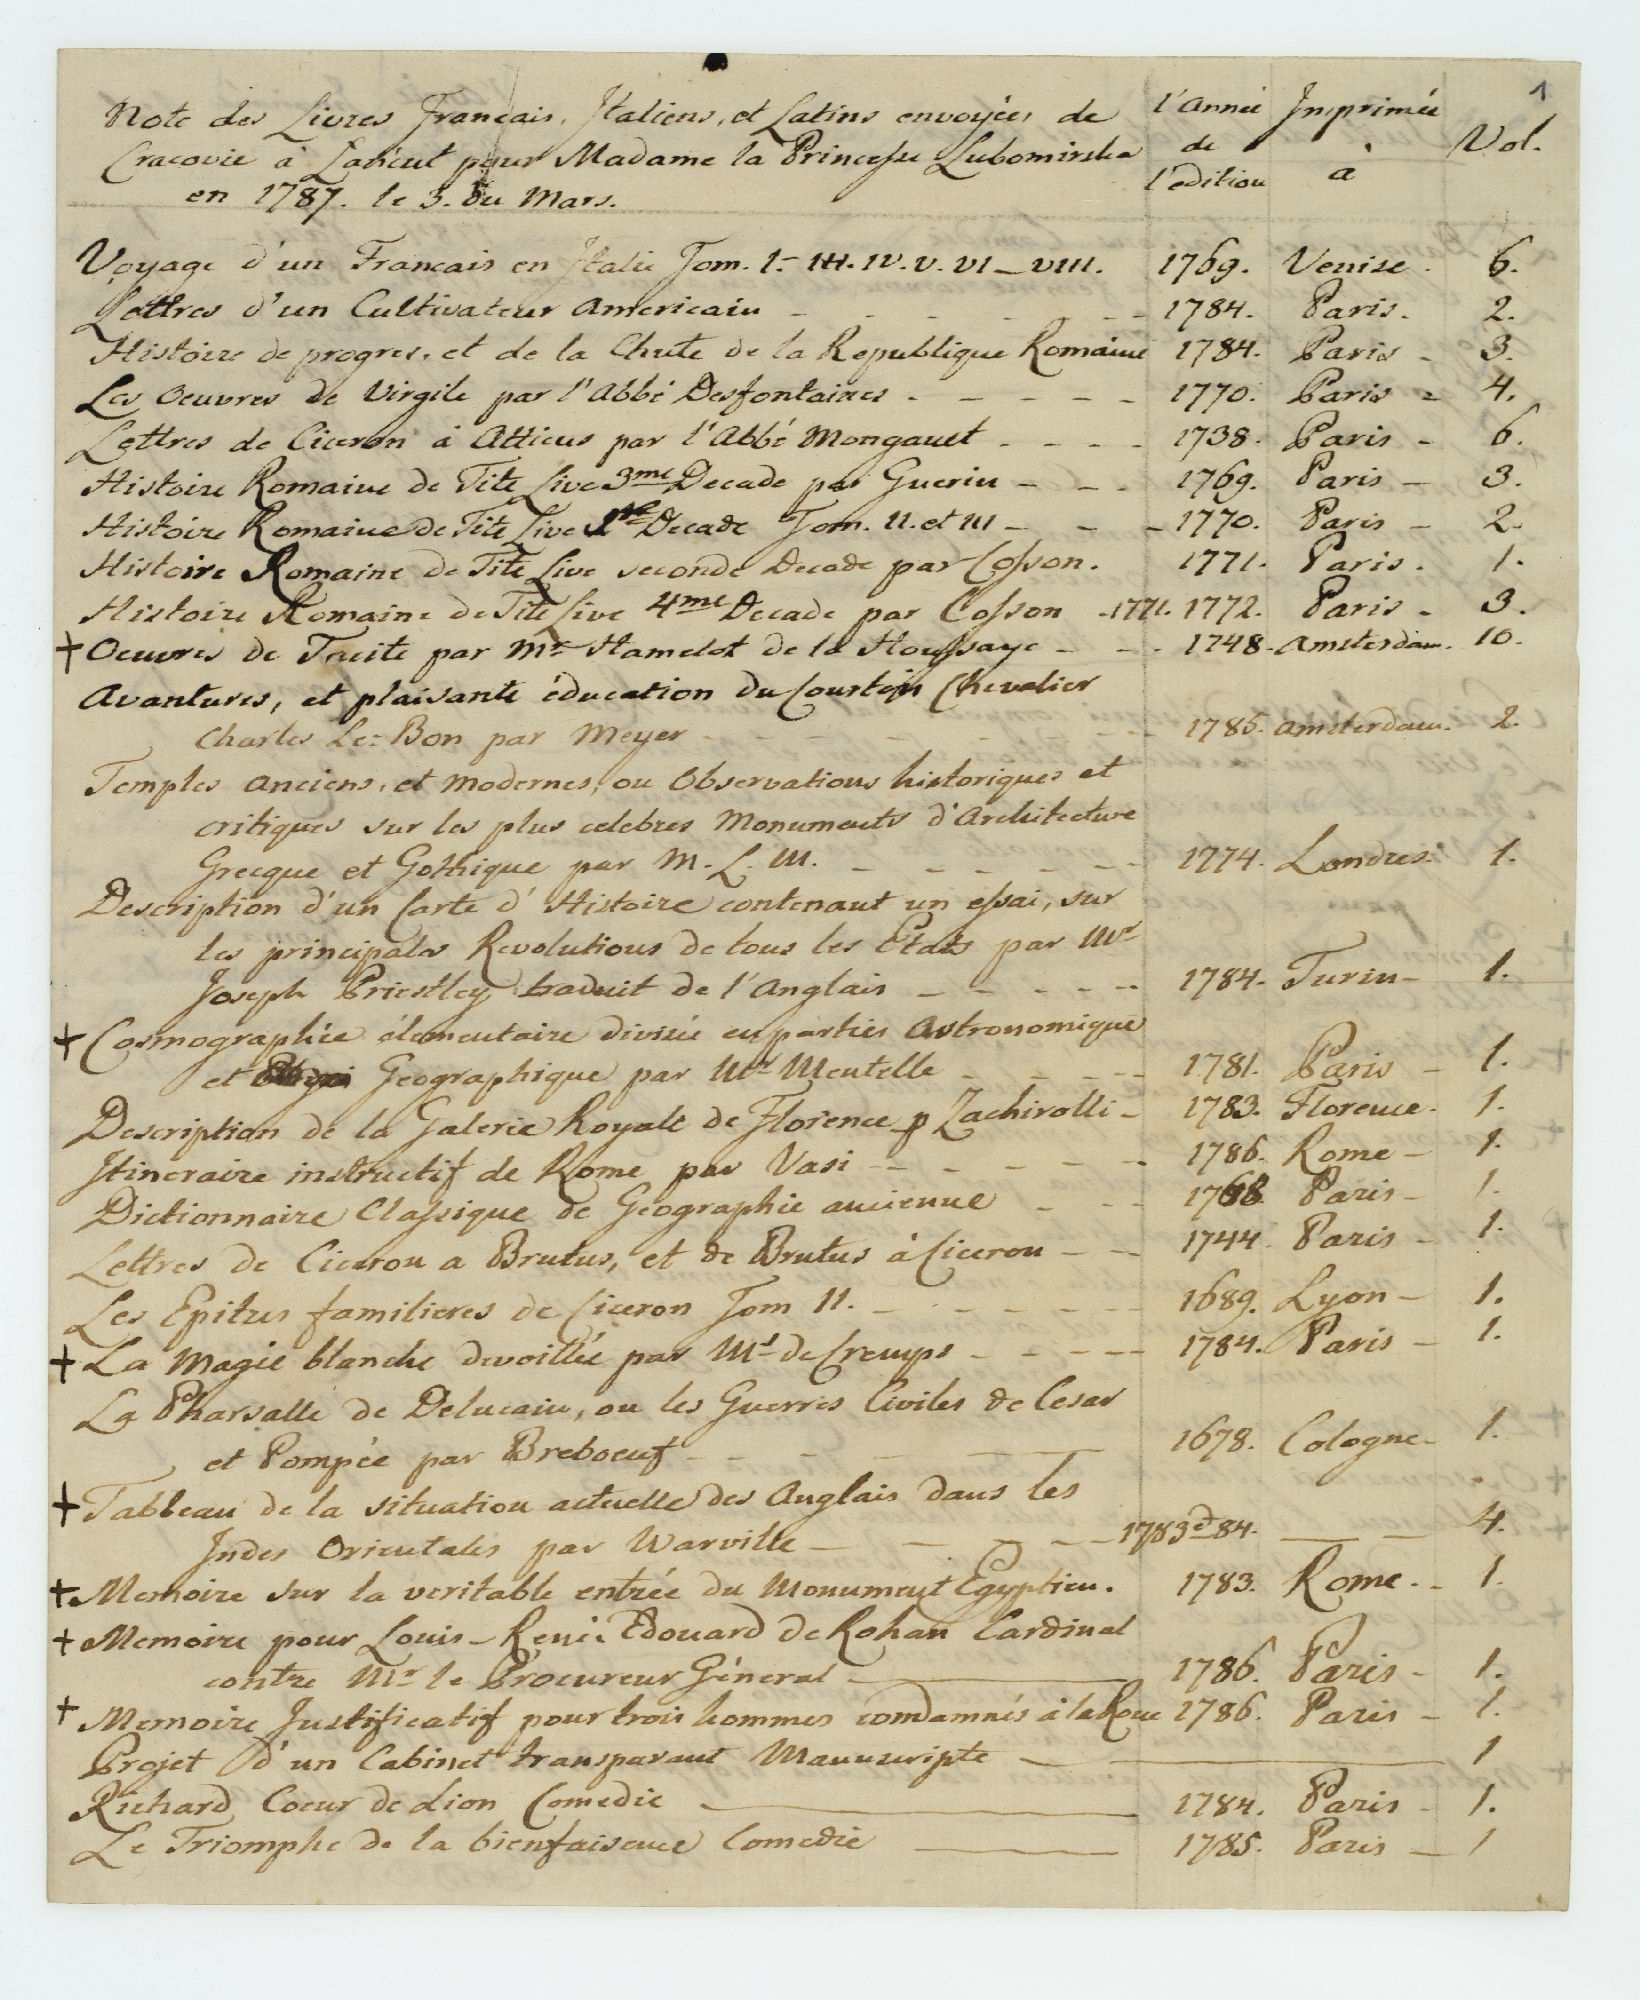 1
Note des Livres Francais, Italiens, et Latins envoyées de
Cracovie à Lańcut pour Madame la Princesse Lubomirska
en 1787. le 3. du Mars.
l'Année de l'edition
Imprimée à
Vol.
Voyage d'un Francais en Italie Tom. I.- III. IV. V. VI - VIII. 1769. Venise. 6.
Lettres d'un Cultivateur Americain - - - - - - - 1784. Paris. 2.
Histoire de progres, et de la Chute de la Republique Romaine 1784. Paris - 3.
Les Oeuvres de Virgile par l'Abbé Desfontaines - - - - - 1770. Paris - 4.
Lettres de Ciceron à Atticus par l'Abbé Mongault - - - - 1738. Paris - 6.
Histoire Romaine de Tite Live 3me Decade par Guerin - - - 1769. Paris - 3.
Histoire Romaine de Tite Live 1re Decade Tom. II. et III - - - 1770. Paris - 2.
Histoire Romaine de Tite Live seconde Decade par Cosson. 1771. Paris. 1.
Histoire Romaine de Tite Live 4me Decade par Cosson - 1771. 1772. Paris - 3.
+ Oeuvres de Tacite par Mr Hamelot de la Houssaye - - - 1748. Amsterdam. 10.
Avantures, et plaisante éducation du Courtois Chevalier
Charles Le-Bon par Meyer - - - - - - - 1785. Amsterdam. 2.
Temples Anciens, et Modernes, ou Observations historiques et
critiques sur les plus celebres Monuments d'Architecture
Grecque et Gothique par M. L. M. - - - - - - 1774. Londres. 1.
Description d'un Carte d'Histoire contenant un essai, sur
les principales Revolutions de tous les Etats par Mr
Joseph Priestley traduit de l'Anglais - - - - - 1784. Turin - 1.
+ Cosmographie élementaire divisée en parties Astronomique
et Geographique par Mr Mentelle - - - - - 1781. Paris - 1.
Description de la Galerie Royale de Florence p Zachirolli - 1783. Florence. 1.
Itineraire instructif de Rome par Vasi - - - - - - 1786. Rome - 1.
Dictionnaire Classique de Geographie ancienne - - - 1768 Paris - 1.
Lettres de Ciceron a Brutus, et de Brutus à Ciceron - - 1744. Paris - 1.
Les Epitres familieres de Ciceron Tom II. - - - - - - 1689. Lyon - 1.
+ La Magie blanche devoillée par Mr de Cremps - - - - - 1784. Paris - 1.
La Pharsalle de Delucain, ou les Guerres Civiles de Cesar
et Pompée par Breboeuf - - - - - 1678. Cologne - 1.
+ Tableau de la situation actuelle des Anglais dans les
Indes Orientales par Warville - - - - - 1783 et 84. - - 4.
+ Memoire sur la veritable entrée du Monument Egyptien. 1783. Rome. - 1.
+ Memoire pour Louis-René Edouard de Rohan Cardinal
contre Mr le Procureur Géneral - 1786. Paris - 1.
+ Memoire Justificatif pour trois hommes condamnés à la Roue 1786. Paris - 1.
Projet d'un Cabinet transparant Manuscripte - - 1
Richard Coeur de Lion Comedie - 1784. Paris - 1.
Le Triomphe de la bienfaisence Comedie - 1785. Paris - 1